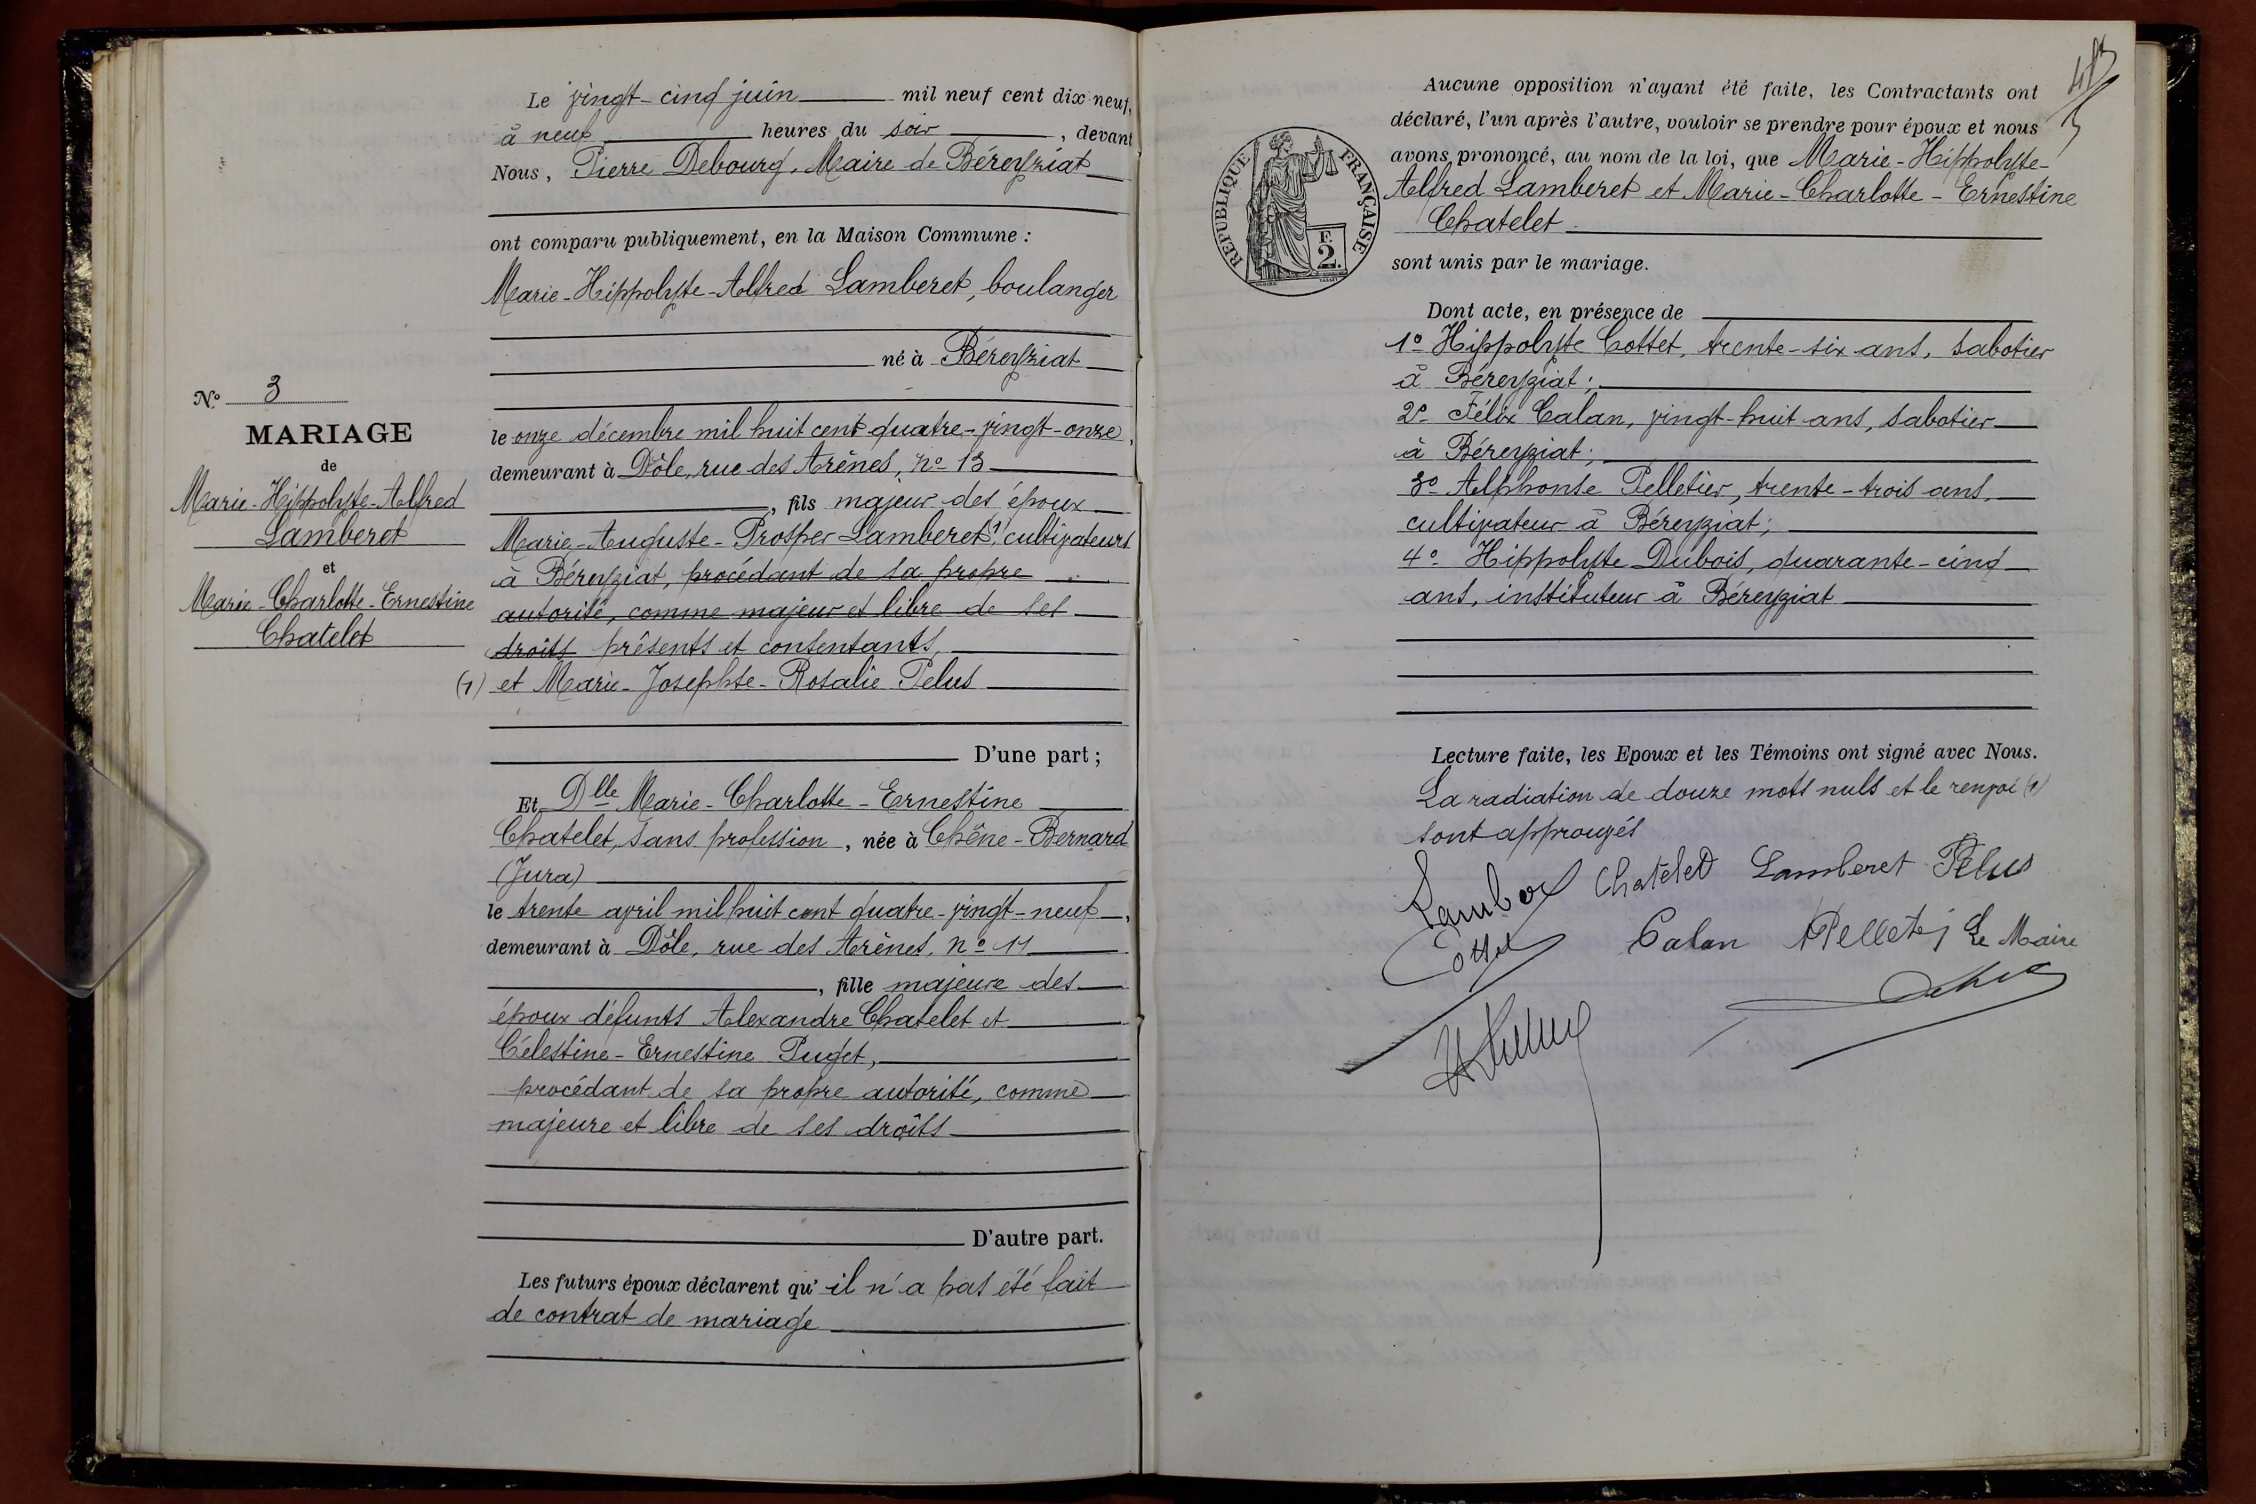 Le vingt-cinq juin mil neuf cent dix neuf,
à neuf heures du soir, devant
Nous, Pierre Debourg, Maire de Béreyziat
ont comparu publiquement, en la Maison Commune :
Marie-Hippolyte-Alfred Lamberet, boulanger
né à Béreyziat
le onze décembre mil huit cent quatre-vingt-onze,
demeurant à Dôle, rue des Arènes, no 13
, fils majeur des époux
Marie-Auguste-Prosper Lamberet (1) cultivateurs
à Béreyziat, procédant de sa propre
autorité, comme majeur et libre de ses
droits présents et consentants,
(1) et Marie-Josephte-Rosalie Pelus
D'une part ;
No 3
MARIAGE
de
Marie-Hippolyte-Alfred
Lamberet
et
Marie-Charlotte-Ernestine
Chatelet
Et Dlle Marie-Charlotte-Ernestine
Chatelet, sans profession, née à Chêne-Bernard
(Jura)
le trente avril mil huit cent quatre-vingt-neuf,
demeurant à Dôle, rue des Arènes, no 11
, fille majeure des
époux défunts Alexandre Chatelet et
Célestine-Ernestine Puget,
procédant de sa propre autorité, comme
majeure et libre de ses droits
D'autre part.
Les futurs époux déclarent qu'il n'a pas été fait
de contrat de mariage
Aucune opposition n'ayant été faite, les Contractants ont
déclaré, l'un après l'autre, vouloir se prendre pour époux et nous
avons prononcé, au nom de la loi, que Marie-Hippolyte-
Alfred Lamberet et Marie-Charlotte-Ernestine
Chatelet
sont unis par le mariage.
RÉPUBLIQUE FRANÇAISE
F.
2.
Dont acte, en présence de
1o Hippolyte Cottet, trente-six ans, sabotier
à Béreyziat ;
2o Félix Calan, vingt-huit ans, sabotier
à Béreyziat ;
3o Alphonse Pelletier, trente-trois ans,
cultivateur à Béreyziat ;
4o Hippolyte Dubois, quarante-cinq
ans, instituteur à Béreyziat
Lecture faite, les Epoux et les Témoins ont signé avec Nous.
La radiation de douze mots nuls et le renvoi (1)
sont approuvés
Lamberet Chatelet Lamberet Pelus
Cottet Calan Pelletier Le Maire